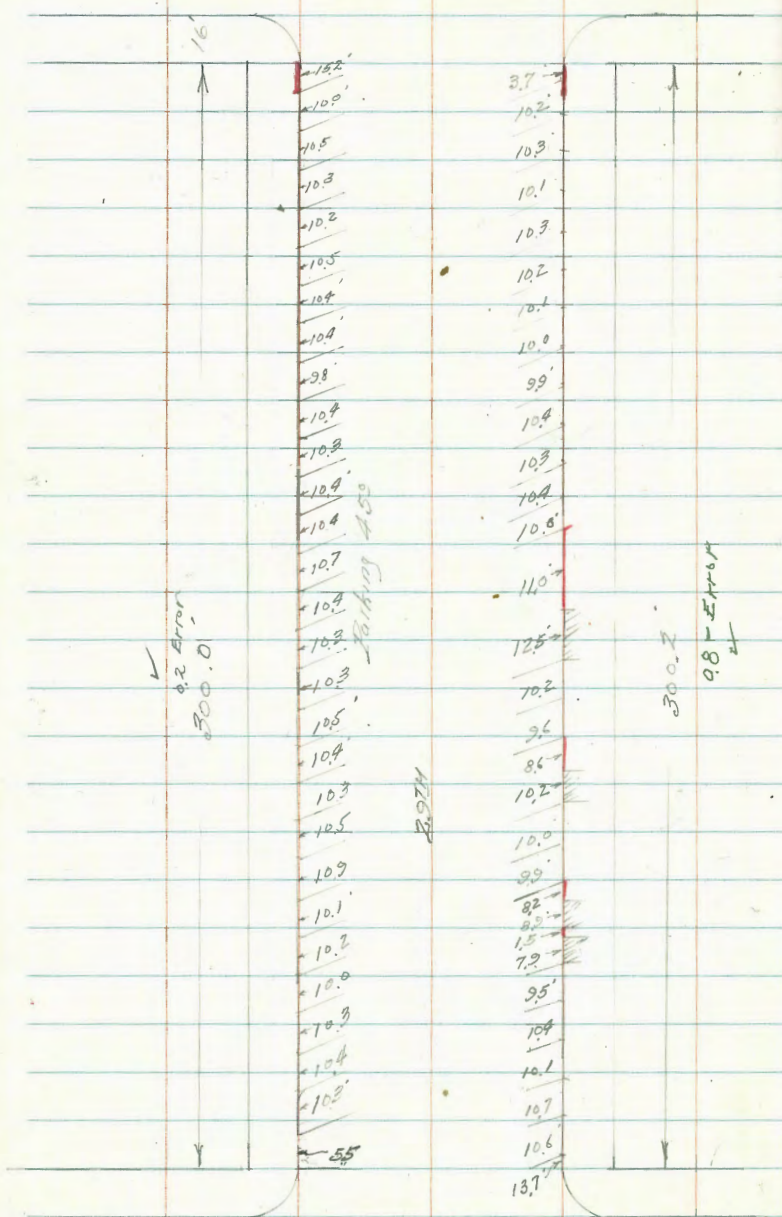 16'
15.2'
10.0'
10.5
10.3
10.2
10.5
10.4'
10.4'
9.8
10.4
10.3
10.4'
10.4
10.7
10.4
10.3
10.3
10.5'
10.4
10.3
10.5
10.9
10.1'
10.2
10.0
10.3
10.4
10.3'
5.5
Parking 45°
0.2 Error
300.0'
3.7'
10.2'
10.3
10.1
10.3
10.2
10.1
10.0
9.9'
10.4
10.3
10.4
10.8'
11.0'
12.5'
10.2
9.6
8.6
10.2
10.0
9.9
8.2
1.5
7.9
9.5'
10.4
10.1
10.7
10.6
13.7'
300.2'
0.8 - Error